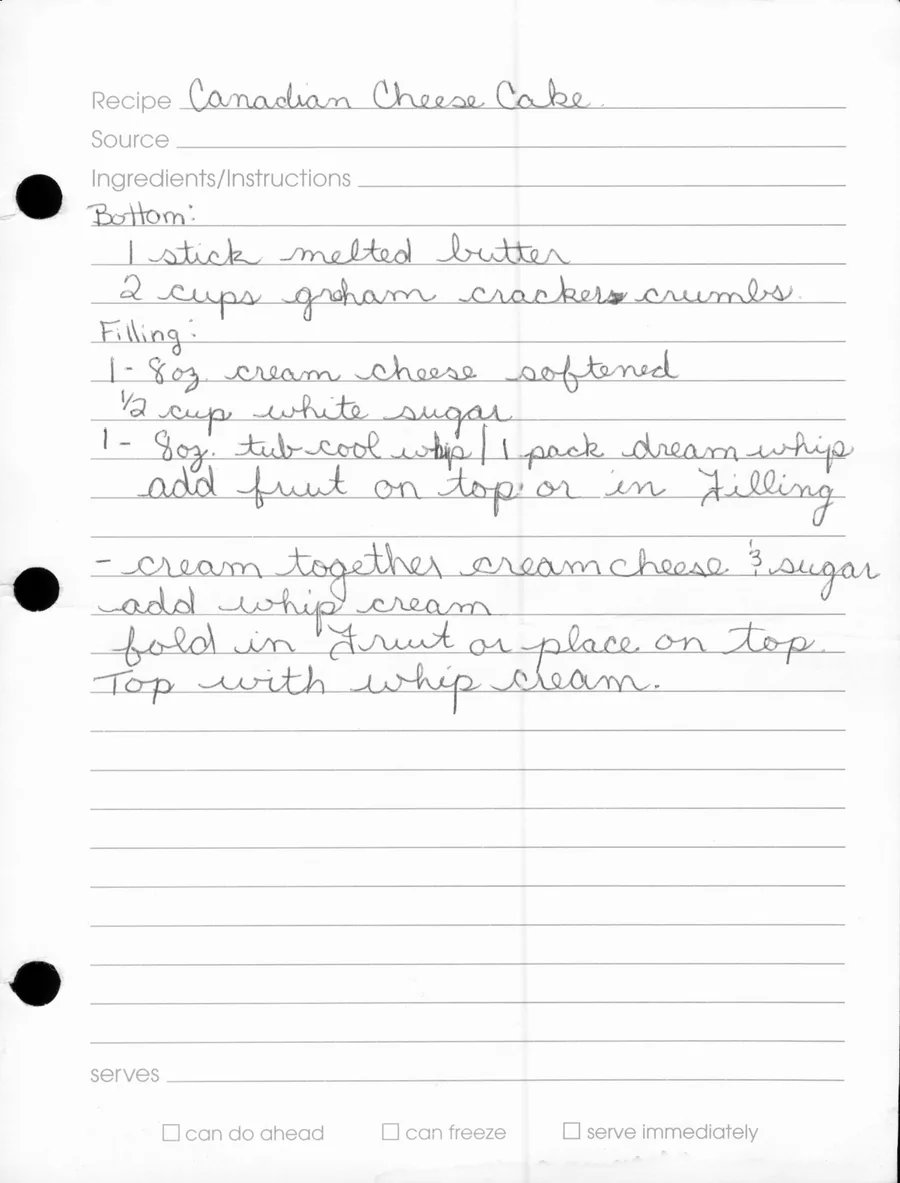 Recipe Canadian Cheese Cake.
Source
Ingredients/Instructions
Bottom:
1 stick melted butter
2 cups graham cracker crumbs.
Filling:
1 - 8oz. cream cheese softened
1/2 cup white sugar
1 - 8oz. tub cool whip / 1 pack dream whip
add fruit on top or in Filling
- cream together cream cheese & sugar
add whip cream
fold in Fruit or place on top.
Top with whip cream.
serves
can do ahead can freeze serve immediately